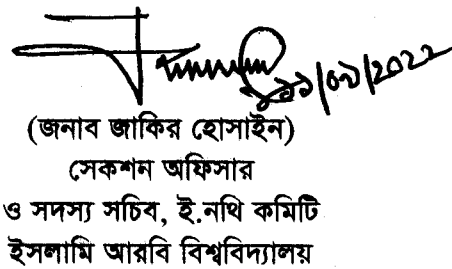 ২১/০৭/2022
(জনাব জাকির হোসাইন)
সেকশন অফিসার
ও সদস্য সচিব, ই.নথি কমিটি
ইসলামি আরবি বিশ্ববিদ্যালয়